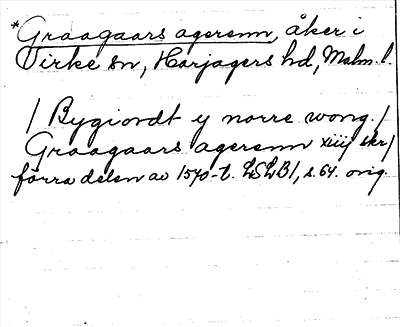 *Graagaars agerenn, åker i
Virke sn, Harjagers hd, Malm. l.
/ Bygiordt y norre wong. /
Graagaars agerenn xiii/ skr/
förra delen av 1570-t. LSLB1, s. 64. orig.